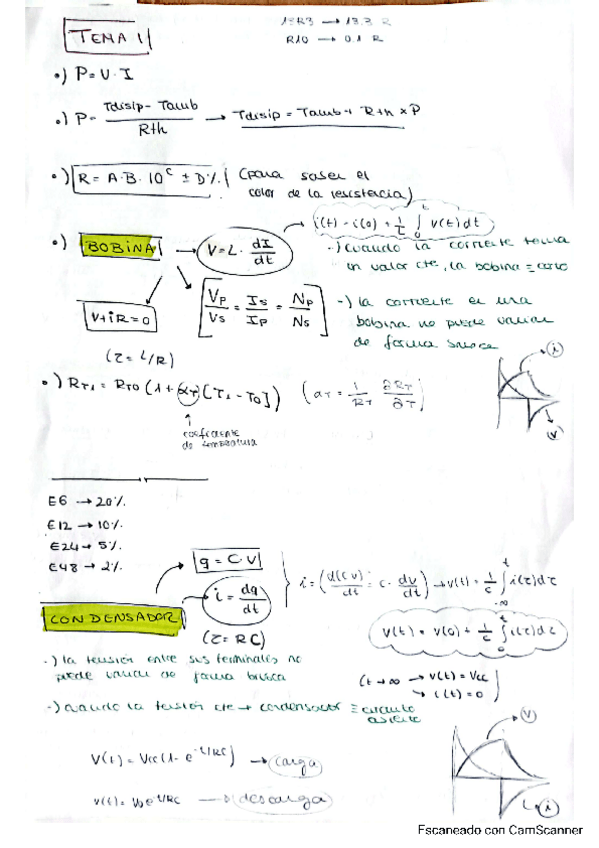 TEMA 1
15R3 → 15.3 R
R10 → 0.1 R
•) P = V · I
•) P = (Tdisip - Tamb) / Rth → Tdisip = Tamb + Rth × P
•) R = A·B·10^C ± D% (para saber el
color de la resistencia)
•) BOBINA → V = L · dI/dt → i(t) - i(0) = 1/L ∫ V(t) dt
-) cuando la corriente tenga
un valor cte, la bobina ≡ corto
V + iR = 0
[Vp/Vs = Is/Ip = Np/Ns]
-) la corriente en una
bobina no puede variar
de forma brusca
(τ = L/R)
•) RT1 = RT0 (1 + αT) [T1 - T0]) (αT = 1/RT ∂RT/∂T)
coeficiente
de temperatura
(i)
(V)
E6 → 20%
E12 → 10%
E24 → 5%
E48 → 2%
CONDENSADOR
q = C·V
i = dq/dt
(τ = RC)
i = (d(CV)/dt = C · dv/dt) → v(t) = 1/C ∫ i(τ) dτ
V(t) = V(0) + 1/C ∫ i(τ) dτ
-) la tensión entre sus terminales no
puede variar de forma brusca
(t → ∞ → V(t) = Vcc
→ i(t) = 0)
-) cuando la tensión cte → condensador ≡ circuito
abierto
V(t) = Vcc (1 - e^-t/RC) → carga
V(t) = V0 e^-t/RC → descarga
(V)
(i)
Escaneado con CamScanner